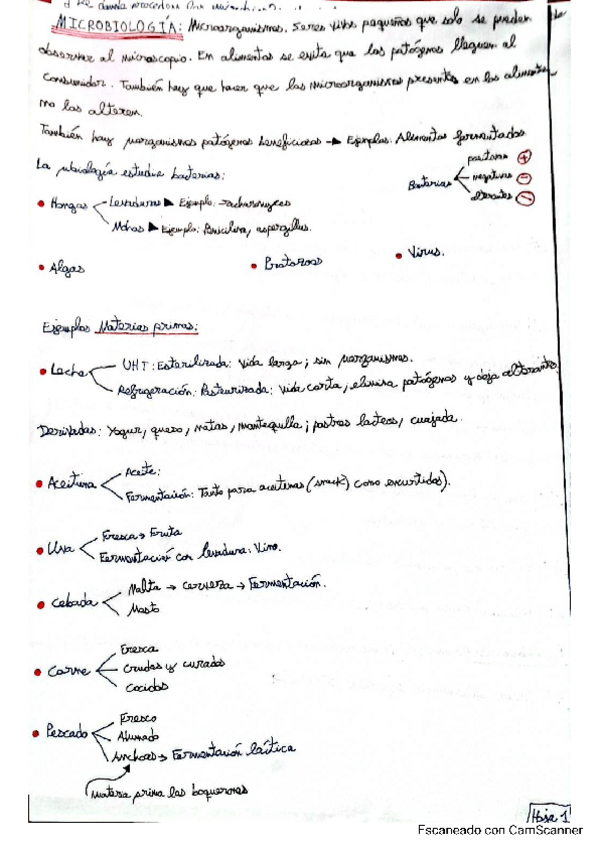 MICROBIOLOGÍA: Microorganismos. Seres vivos pequeños que solo se pueden
observar al microscopio. En alimentos se evita que los patógenos lleguen al
consumidor. También hay que hacer que los microorganismos presentes en los alimentos
no los alteren.
También hay morganismos patógenos beneficiosos → Ejemplos: Alimentos fermentados
La µbiología estudia bacterias:
Bacterias
positivas +
negativas -
alterantes -
• Hongos
Levaduras ► Ejemplo:
Mohos ► Ejemplo: aspergillus.
• Algas • Protozoos • Virus.
Ejemplos Materias primas:
• Leche
UHT: Esterilizada: Vida larga; sin µorganismos.
Refrigeración: Pasteurizada: Vida corta, elimina patógenos y deja alterantes
Derivados: Yogur, queso, natas, mantequilla; postres lacteos, cuajada.
• Aceituna
Aceite:
Fermentación: Tanto para aceitunas (snack) como encurtidos).
• Uva
Fresca → Fruta
Fermentación con levadura: Vino.
• Cebada
Malta → cerveza → Fermentación.
Mosto
• Carne
Fresca
Crudos y curados
Cocidos
• Pescado
Fresco
Ahumado
Anchoas → Fermentación láctica
materia prima los boquerones
Hoja 1
Escaneado con CamScanner